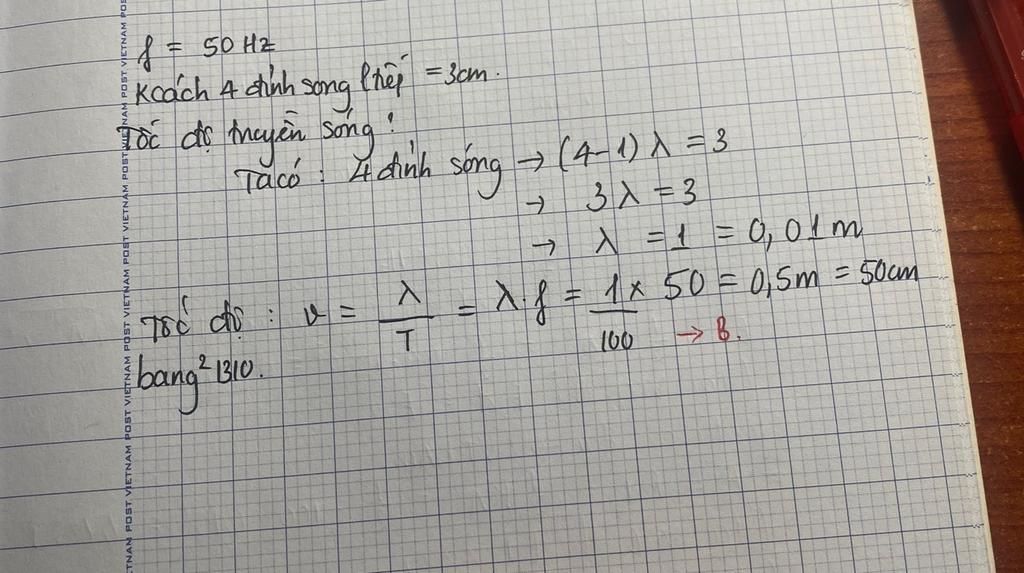 f = 50 Hz
Kcách 4 đỉnh sóng ltiếp = 3cm.
Tốc độ truyền sóng!
Ta có : 4 đỉnh sóng → (4-1) λ = 3
→ 3 λ = 3
→ λ = 1 = 0,01m
Tốc độ : v = λ/T = λ.f = 1/100 x 50 = 0,5m = 50cm
→ B.
bang² 1310.
POST VIETNAM POST VIETNAM POST VIETNAM POST VIETNAM POST VIETNAM